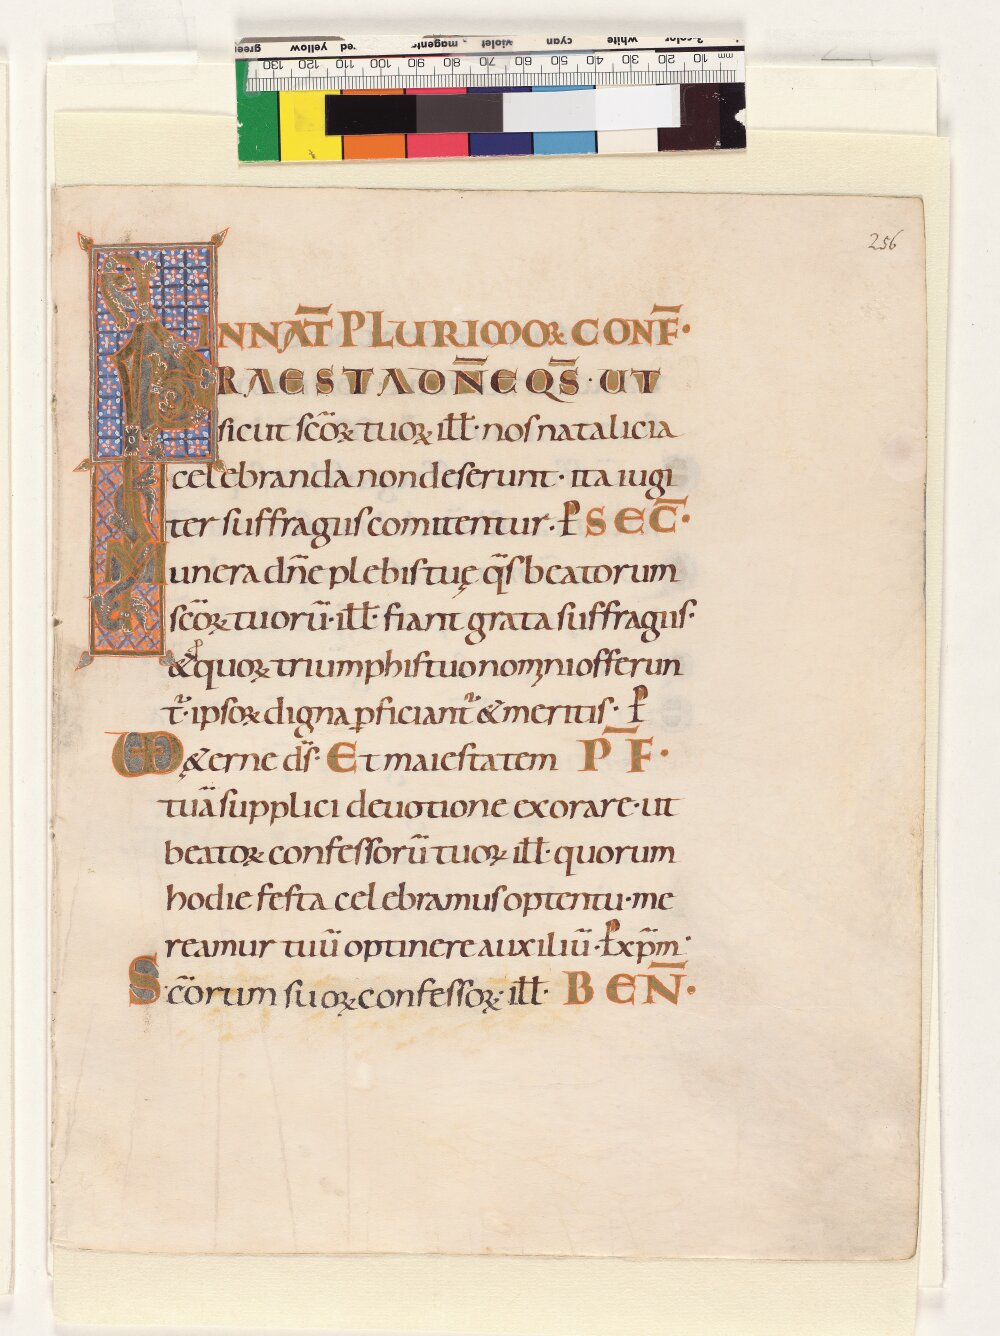 green yellow red magenta violet cyan white 3-color
130 120 110 100 90 80 70 60 50 40 30 20 10 mm
256
IN NAT̅ PLURIMOꝜ CONF̅·
PRAESTA DN̅E QS̅· UT
sicut sc̅oꝝ tuoꝝ· ill̅· nos natalicia
celebranda non deserunt· ita iugi
ter suffragiis comitentur· P̲ SEC̅·
Munera dn̅e plebis tuę qs̅ beatorum
sc̅oꝝ tuoru̅· ill̅· fiant grata suffragiis·
& quoꝝ triumphis tuo nomini offerun
t᷑· ipsoꝝ digna ꝑficiant᷑ & meritis· P̲
VD &erne ds̅· Et maiestatem P̅ F̅·
tua̅ supplici deuotione exorare· ut
beatoꝝ confessoru̅ tuoꝝ ill̅· quorum
hodie festa celebramus optentu· me
reamur tuu̅ optinere auxiliu̅· P̲ xp̅m·
Sc̅orum suoꝝ confessoꝝ· ill̅· BEN̅·